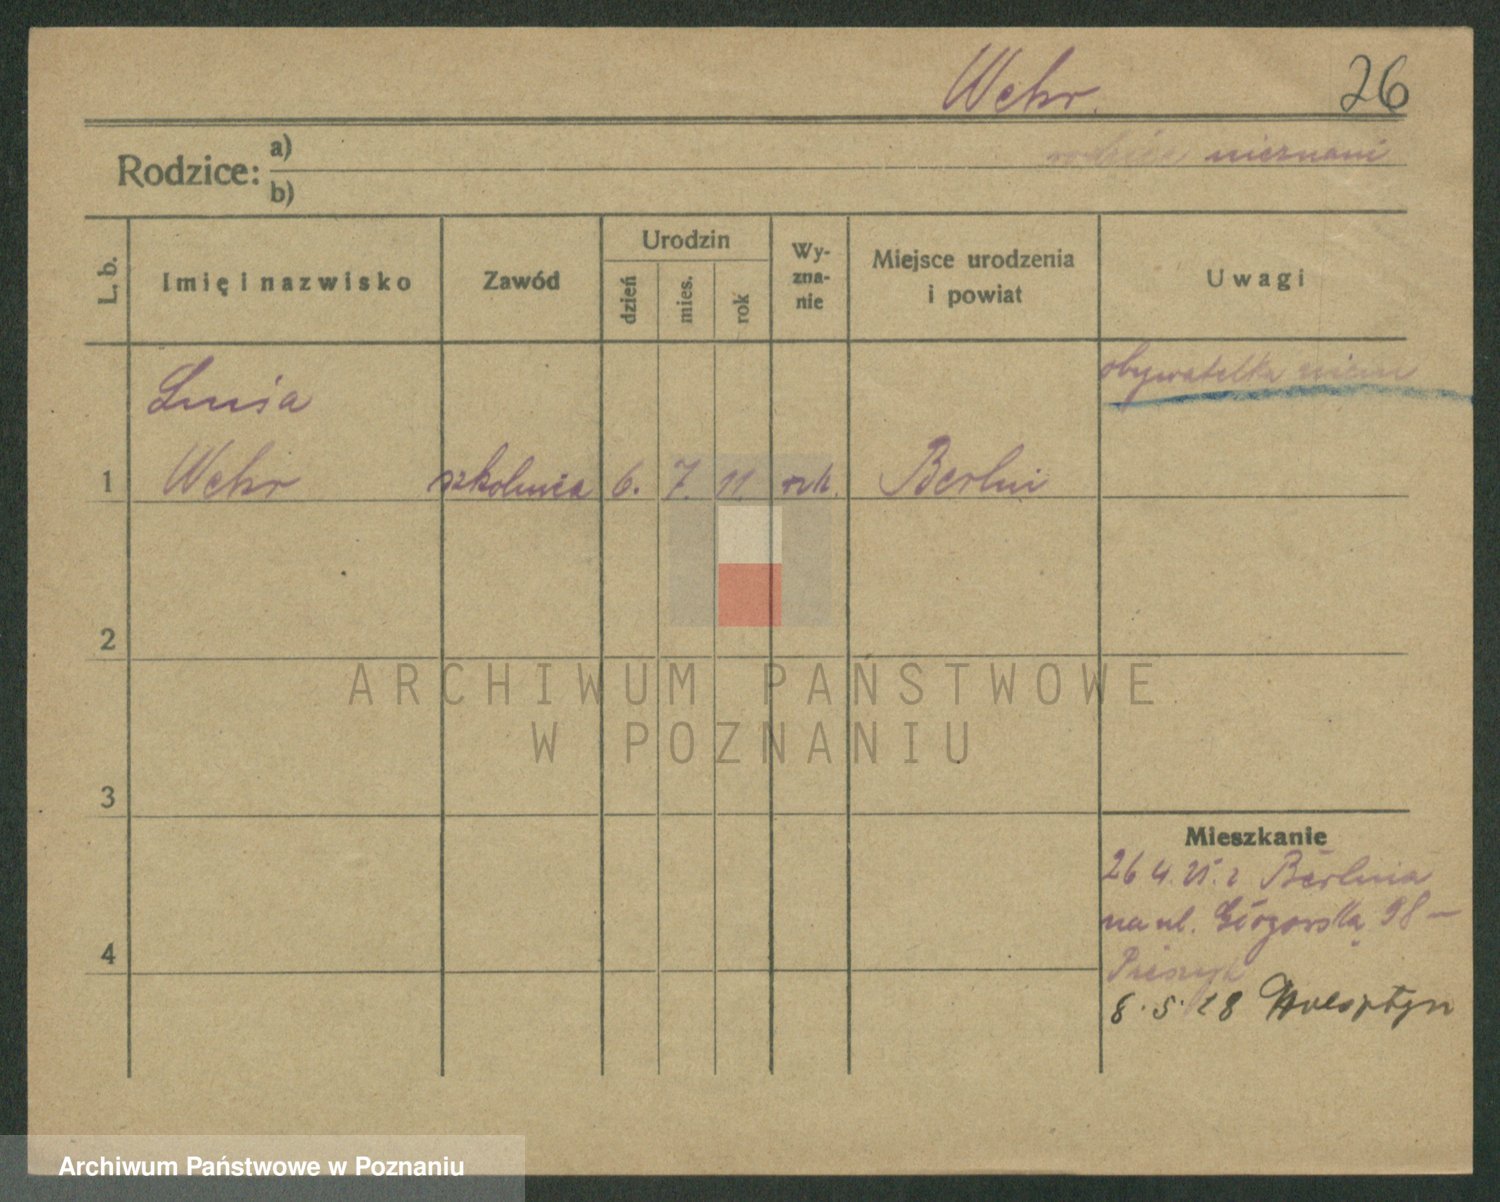 Wehr.
26
Rodzice:
a)
rodzice nieznani
b)
L. b.
Imię i nazwisko
Zawód
Urodzin
dzień
mies.
rok
Wy-
zna-
nie
Miejsce urodzenia
i powiat
Uwagi
obywatelka niem
Luisa
1 Wehr szkolnica 6. 7. 11. rzk. Berlin
2
ARCHIWUM PAŃSTWOWE
W POZNANIU
3
Mieszkanie
26 4. 25. z Berlina
na ul. Głogowską 98 –
4
8. 5. 28
Archiwum Państwowe w Poznaniu